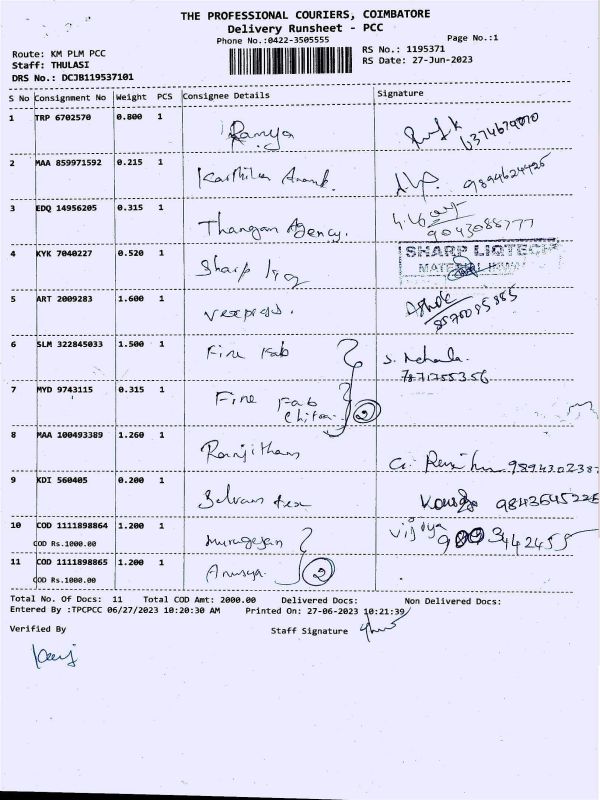 THE PROFESSIONAL COURIERS, COIMBATORE
Delivery Runsheet - PCC
Phone No.:0422-3505555
Page No.:1
Route: KM PLM PCC
RS No.: 1195371
Staff: THULASI
RS Date: 27-Jun-2023
DRS No.: DCJB119537101
S No Consignment No Weight PCS Consignee Details Signature
1 TRP 6702570 0.800 1 Ramya
2 MAA 859971592 0.215 1 Karthika Anand. 9894624425
3 EDQ 14956205 0.315 1 Thangam Agency. 9043088777
4 KYK 7040227 0.520 1 Sharp liq SHARP LIQTECH
5 ART 2009283 1.600 1 Vexpress. Ashok
6 SLM 322845033 1.500 1 Fine Fab S. Mehala.
7871755356
7 MYD 9743115 0.315 1 Fine Fab
2
8 MAA 100493389 1.260 1 Ranjitham
9 KDI 560405 0.200 1
10 COD 1111898864 1.200 1 Murugesan Vijaya
COD Rs.1000.00
11 COD 1111898865 1.200 1 Anusya 2
COD Rs.1000.00
Total No. Of Docs: 11 Total COD Amt: 2000.00 Delivered Docs: Non Delivered Docs:
Entered By :TPCPCC 06/27/2023 10:20:30 AM Printed On: 27-06-2023 10:21:39
Verified By Staff Signature